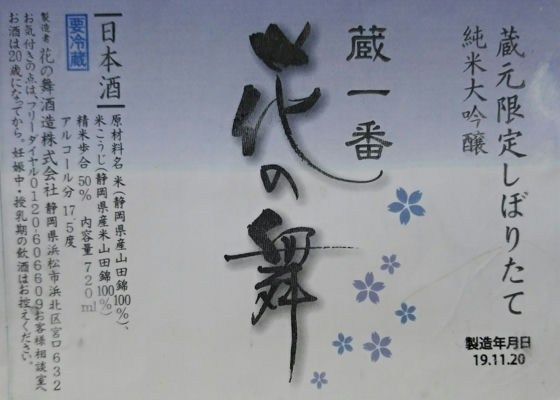 蔵元限定しぼりたて
純米大吟醸
蔵一番
花の舞
製造年月日
19.11.20
日本酒
要冷蔵
原材料名 米(静岡県産山田錦100%)、
米こうじ(静岡県産米山田錦100%)
精米歩合 50% 内容量 720ml
アルコール分 17.5度
製造者 花の舞酒造株式会社 静岡県浜松市浜北区宮口632
お気付きの点は、フリーダイヤル0120-606609お客様相談室へ
お酒は20歳になってから。妊娠中・授乳期の飲酒はお控えください。